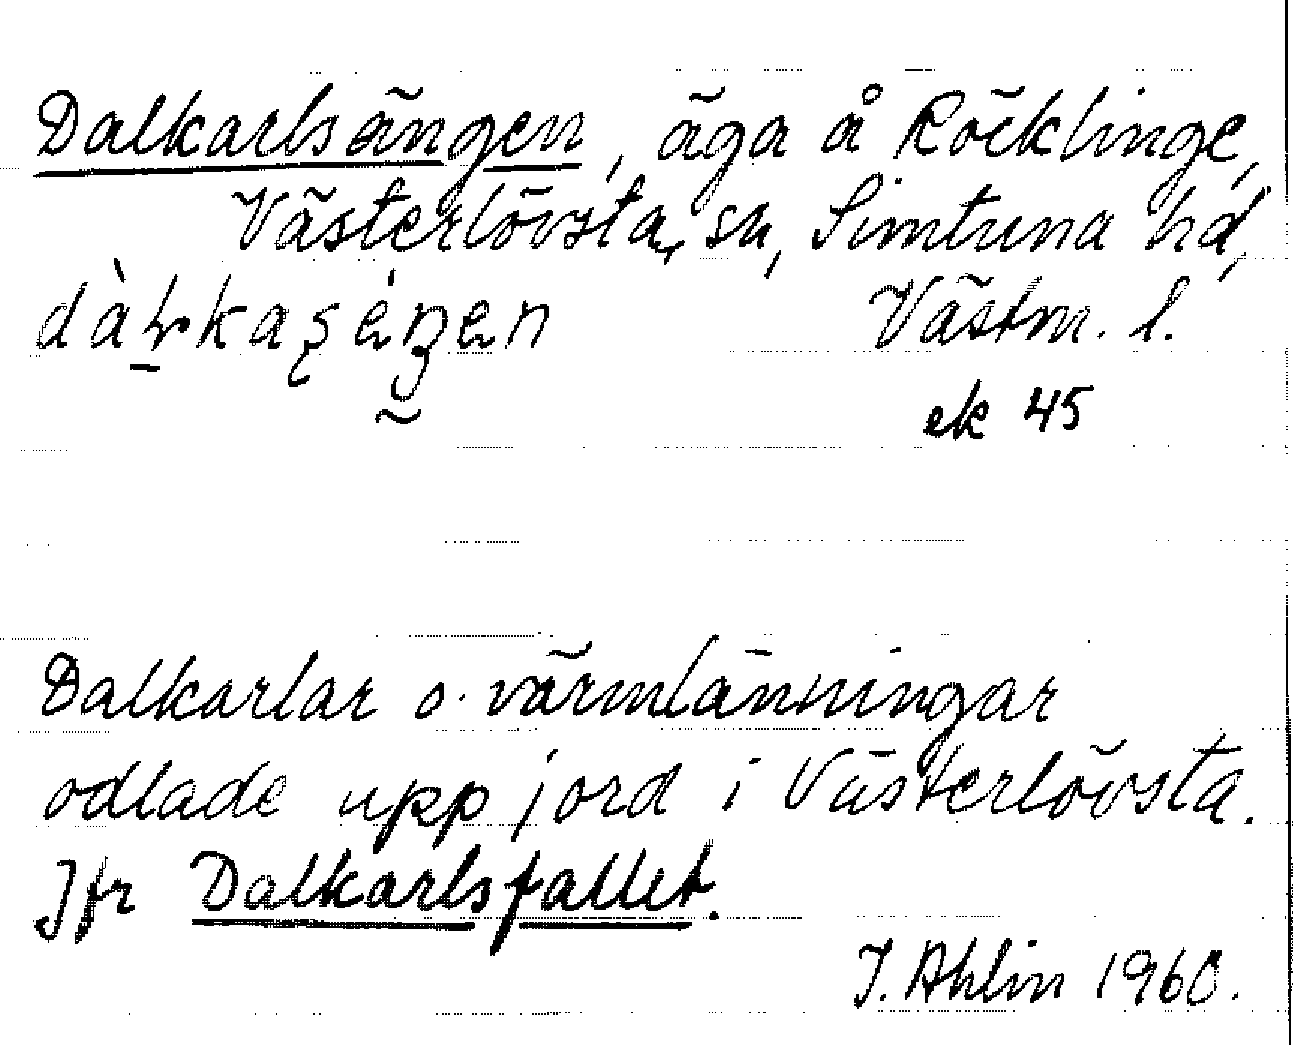 Dalkarlsängen, äga å Röcklinge,
Västerlövsta sn, Simtuna hd,
Västm. l.
ek 45
Dalkarlar o. värmlänningar
odlade upp jord i Västerlövsta.
Jfr Dalkarlsfallet.
J. Ahlin 1960.